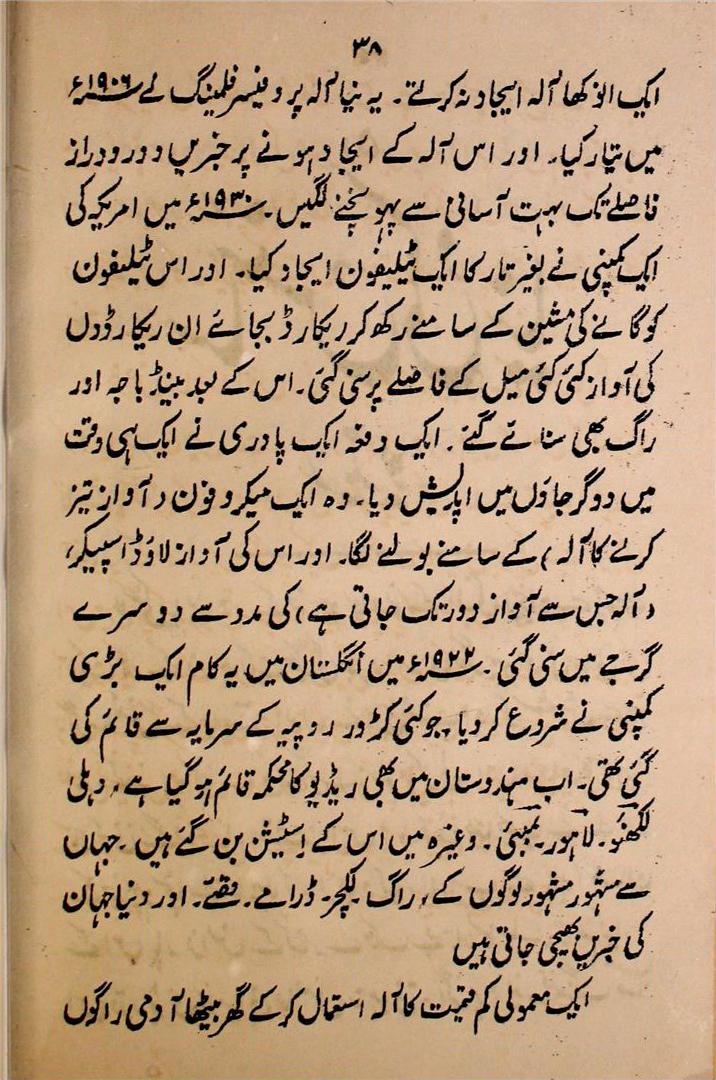 ۳۸
ایک انوکھا آلہ ایجاد نہ کرلتے۔ یہ نیا آلہ پروفیسر فلمینگ نے ۱۹۰۶ء
میں تیار کیا۔ اور اس آلہ کے ایجاد ہونے پر خبریں دور دراز
فاصلے تک بہت آسانی سے پہونچنے لگیں۔ ۱۹۳۰ء میں امریکہ کی
ایک کمپنی نے بغیر تار کا ایک ٹیلیفون ایجاد کیا۔ اور اس ٹیلیفون
کو گانے کی مشین کے سامنے رکھ کر ریکارڈ بجائے ان ریکارڈوں
کی آواز کئی کئی میل کے فاصلے پر سنی گئی۔ اس کے بعد بینڈ باجہ اور
راگ بھی سنائے گئے۔ ایک دفعہ ایک پادری نے ایک ہی وقت
میں دو گرجاؤں میں اپدیش دیا۔ وہ ایک میکروفون (آواز تیز
کرنے کا آلہ) کے سامنے بولنے لگا۔ اور اس کی آواز لاؤڈ اسپیکر،
(آلہ جس سے آواز دور تک جاتی ہے) کی مدد سے دوسرے
گرجے میں سنی گئی۔ ۱۹۲۲ء میں انگلستان میں یہ کام ایک بڑی
کمپنی نے شروع کر دیا، جو کئی کڑور روپیہ کے سرمایہ سے قائم کی
گئی تھی۔ اب ہندوستان میں بھی ریڈیو کا محکمہ قائم ہو گیا ہے، دہلی
لکھنؤ۔ لاہور۔ بمبئی۔ وغیرہ میں اس کے اسٹیشن بن گئے ہیں۔ جہاں
سے مشہور مشہور لوگوں کے، راگ۔ لکچر۔ ڈرامے۔ قصّے۔ اور دنیا جہان
کی خبریں بھیجی جاتی ہیں
ایک معمولی کم قیمت کا آلہ استعمال کر کے گھر بیٹھا آدمی راگوں